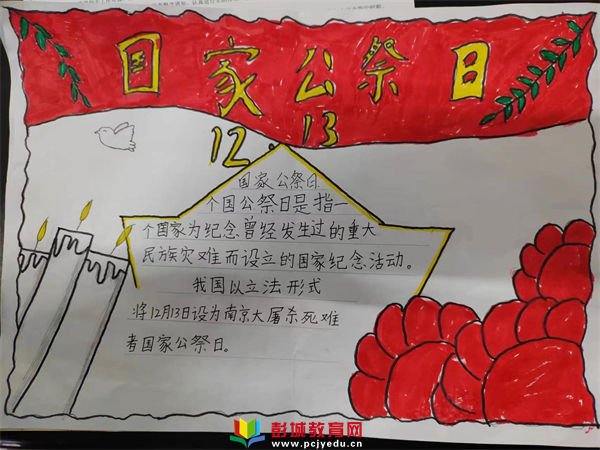 国家公祭日
12.13
国家公祭日
个国公祭日是指一
个国家为纪念曾经发生过的重大
民族灾难而设立的国家纪念活动。
我国以立法形式
将12月13日设为南京大屠杀死难
者国家公祭日。
彭城教育网
www.pcjyedu.cn